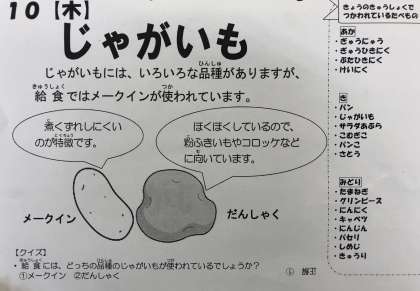 10【木】
じゃがいも
じゃがいもには、いろいろな品種がありますが、
給食ではメークインが使われています。
煮くずれしにくい
のが特徴です。
ほくほくしているので、
粉ふきいもやコロッケなど
に向いています。
メークイン
だんしゃく
【クイズ】
・給食には、どっちの品種のじゃがいもが使われているでしょうか?
①メークイン ②だんしゃく
きょうのきゅうしょくで
つかわれているたべもの
あか
・ぎゅうにゅう
・ぎゅうひきにく
・ぶたひきにく
・けいにく
き
・パン
・じゃがいも
・サラダあぶら
・こむぎこ
・パンこ
・さとう
みどり
・たまねぎ
・グリンピース
・にんにく
・キャベツ
・にんじん
・パセリ
・しめじ
・きゅうり